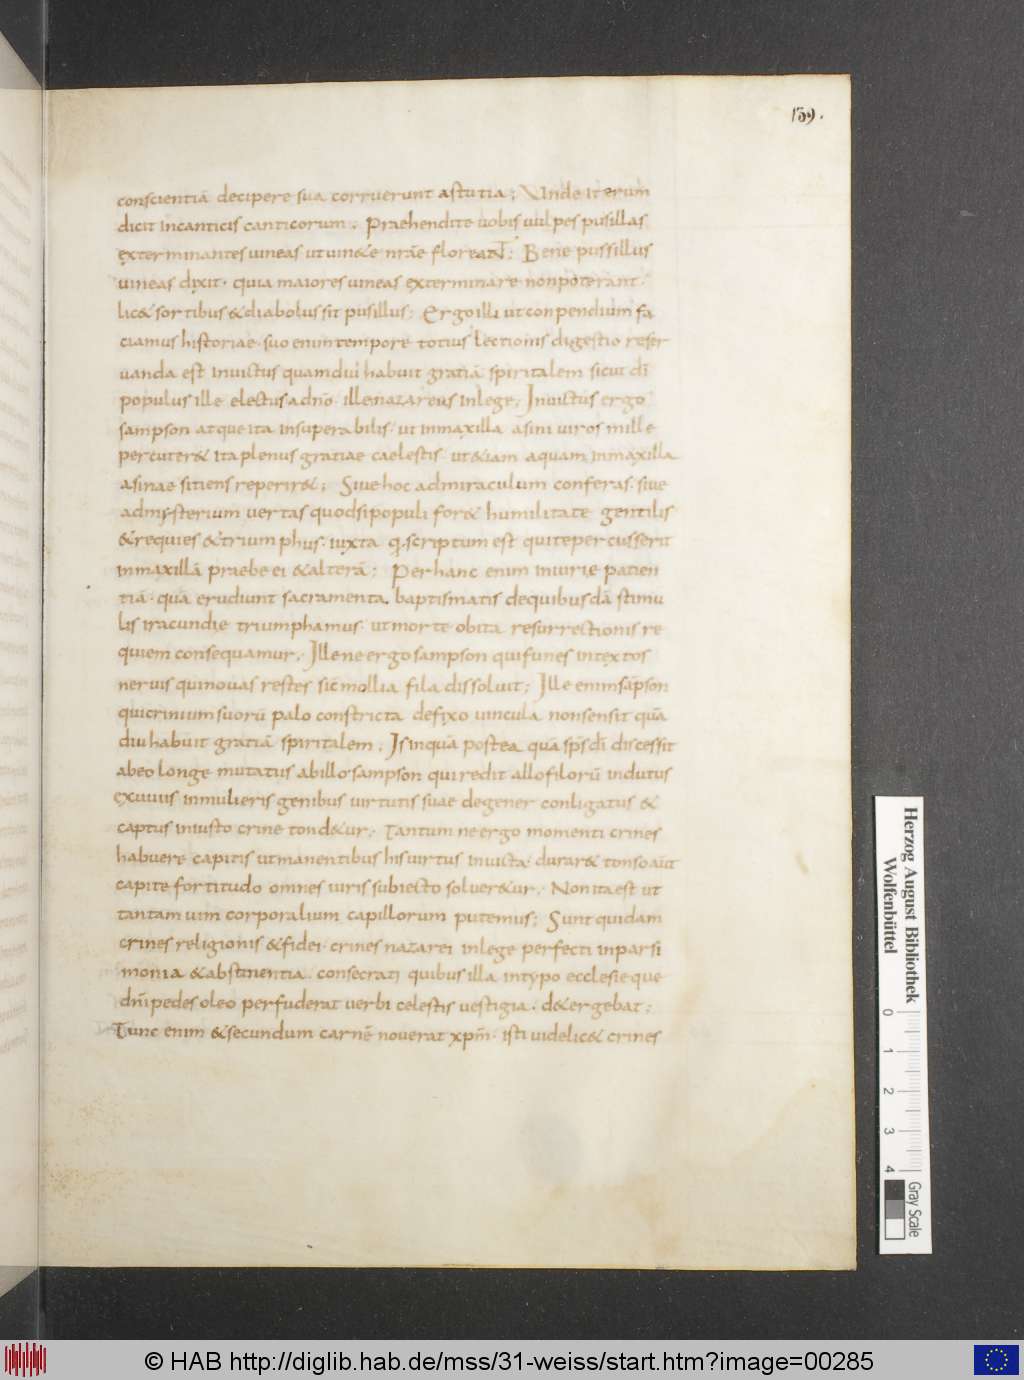 139.
conscientiā decipere sua corruerunt astutia; Unde iterum
dicit incanticis canticorum. Praehendite uobis uulpes pusillas
exterminantes uineas utuin&e nrāe floreant; Bene pussillus
uineas dixit. quia maiores uineas exterminare nonpoterant.
lic& fortibus &diabolus sit pusillus; Ergo illi utconpendium fa
ciamus historiae. suo enim tempore totius lectionis digestio reser
uanda est inuictus quamdui habuit gratiā spiritalem sicut dī
populus ille electus adnō. illenazareus inlege; Inuictus ergo
sampson atque ita insuperabilis. ut inmaxilla asini uiros mille
percuter& ita plenus gratiae caelestis. ut&iam aquam inmaxilla
asinae sitiens reperir&; Siue hoc admiraculum conferas. siue
admysterium uertas quodsipopuli for& humilitate gentilis
&requies &triumphus. iuxta q. scriptum est quitepercusserit
inmaxillā praebe ei &alterā; Perhanc enim iniurie patien
tiā. quā erudiunt sacramenta baptismatis dequibusdā stimu
lis iracundie triumphamus. utmorte obita resurrectionis re
quiem consequamur. Illene ergo sampson quifunes intextos
neruis quinouas restes sic mollia fila dissoluit; Ille enim sāpson
quicrinium suorū palo constricta defixo uincula nonsensit quā
diu habuit gratiā spiritalem. Is inquā postea quā sps dī discessit
abeo longe mutatus abillo sampson qui redit allofilorū indutus
exuuiis inmulieris genibus uirtutis suae degener conligatus &
captus iniusto crine tond&ur. Tantum ne ergo momenti crines
habuere capitis utmanentibus his uirtus inuicta. durar& tonso aut̄
capite fortitudo omnes uiris subiecto soluer&ur. Non ita est ut
tantam uim corporalium capillorum putemus; Sunt quidam
crines religionis &fidei. crines nazarei inlege perfecti inparsi
monia &abstinentia consecrati quibus illa intypo ecclesie que
dnī pedes oleo perfuderat uerbi celestis uestigia. d&ergebat;
Tunc enim &secundum carnē nouerat xpm̄. isti uidelic& crines
Herzog August Bibliothek
Wolfenbüttel
0 1 2 3 4
Gray Scale
© HAB http://diglib.hab.de/mss/31-weiss/start.htm?image=00285